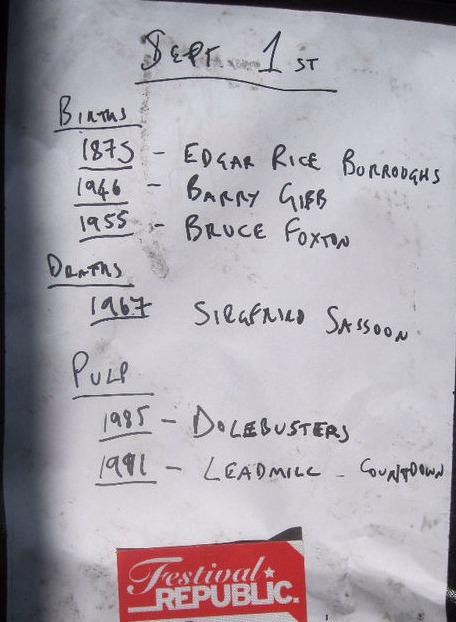 SEPT 1ST
BIRTHS
1875 - EDGAR RICE BURROUGHS
1946 - BARRY GIBB
1955 - BRUCE FOXTON
DEATHS
1967 SIEGFRIED SASSOON
PULP
1985 - DOLEBUSTERS
1991 - LEADMILL - COUNTDOWN
Festival
REPUBLIC.